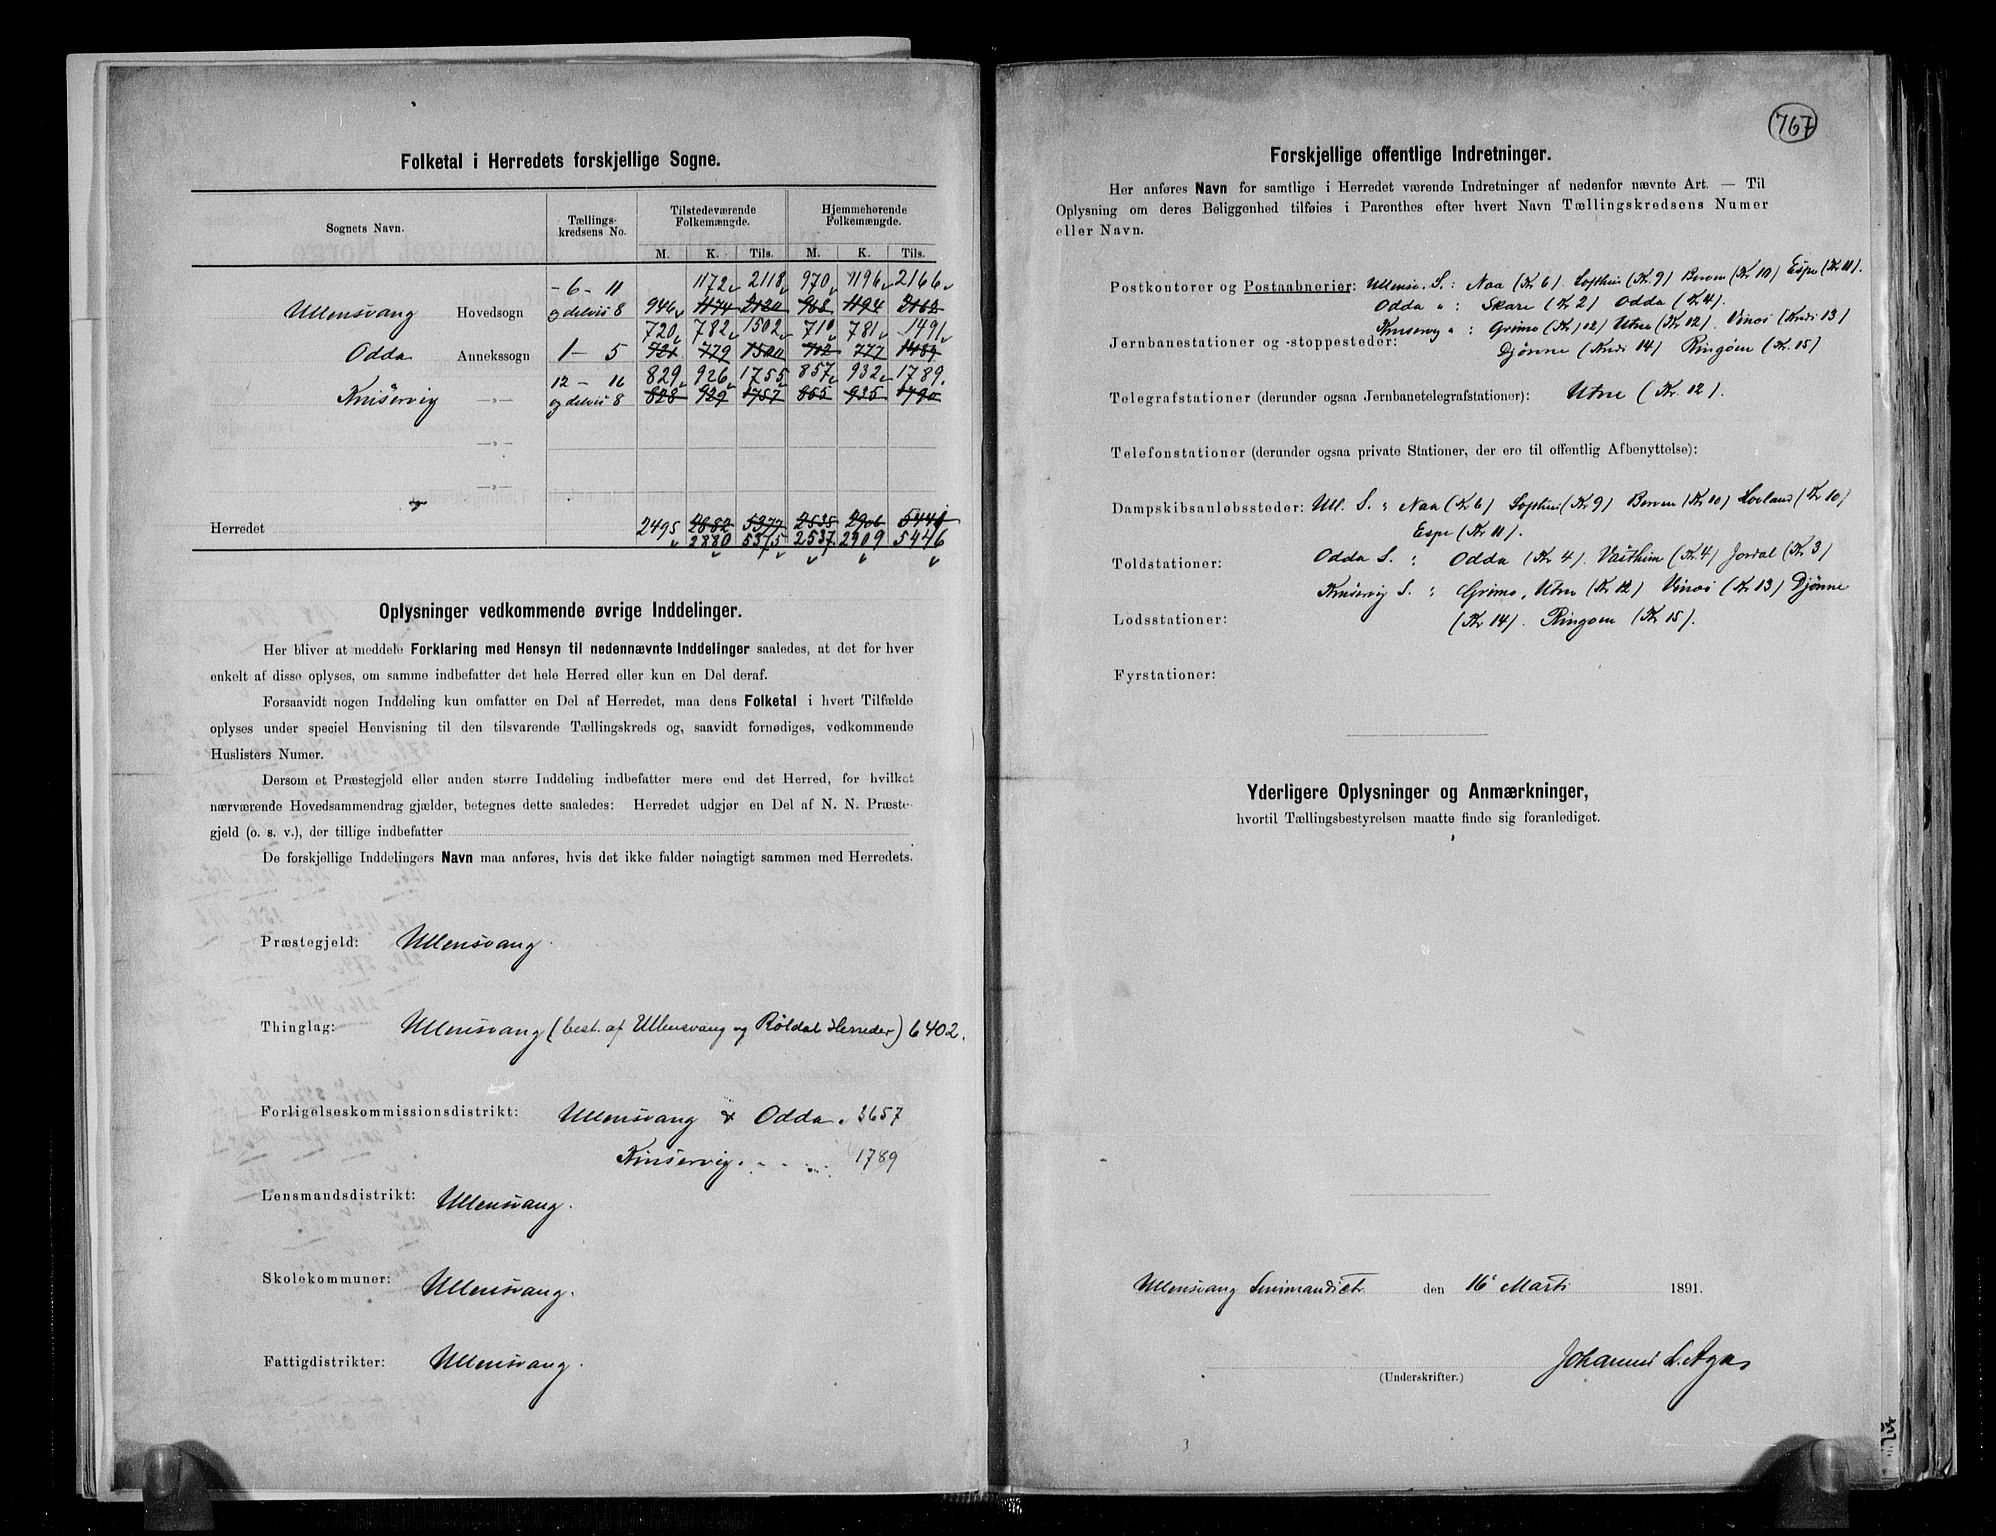 Folketal i Herredets forskjellige Sogne.
Sognets Navn.
Tællings-
kredsens No.
Tilstedeværende
Folkemængde.
Hjemmehørende
Folkemængde.
M. K. Tils. M. K. Tils.
-6-11 1172 2118 970 1196 2166
Ullensvang Hovedsogn og delvis 8 946 1174 2120 968 1194 2162
720 782 1502 710 781 1491
Odda Annekssogn 1-5 721 779 1500 712 777 1489
12-16 829 926 1755 857 932 1789.
Kinservig —»— og delvis 8 828 929 1757 855 935 1790
—»—
—»—
Herredet 2495 2882 5377 2535 2906 5441
2880 5375 2537 2909 5446
Oplysninger vedkommende øvrige Inddelinger.
Her bliver at meddele Forklaring med Hensyn til nedennævnte Inddelinger saaledes, at det for hver
enkelt af disse oplyses, om samme indbefatter det hele Herred eller kun en Del deraf.
Forsaavidt nogen Inddeling kun omfatter en Del af Herredet, maa dens Folketal i hvert Tilfælde
oplyses under speciel Henvisning til den tilsvarende Tællingskreds og, saavidt fornødiges, vedkommende
Huslisters Numer.
Dersom et Præstegjeld eller anden større Inddeling indbefatter mere end det Herred, for hvilket
nærværende Hovedsammendrag gjælder, betegnes dette saaledes: Herredet udgjør en Del af N. N. Præste-
gjeld (o. s. v.), der tillige indbefatter
De forskjellige Inddelingers Navn maa anføres, hvis det ikke falder nøiagtigt sammen med Herredets.
Præstegjeld: Ullensvang.
Thinglag: Ullensvang (best. af Ullensvang og Røldal Herreder) 6402.
Forligelseskommissionsdistrikt: Ullensvang & Odda. 3657
Kinservig. 1789
Lensmandsdistrikt: Ullensvang.
Skolekommuner: Ullensvang.
Fattigdistrikter: Ullensvang.
767
Forskjellige offentlige Indretninger.
Her anføres Navn for samtlige i Herredet værende Indretninger af nedenfor nævnte Art. — Til
Oplysning om deres Beliggenhed tilføies i Parenthes efter hvert Navn Tællingskredsens Numer
eller Navn.
Postkontorer og Postaabnerier: Ullensv. S.: Naa (Kr 6) Lofthus (Kr. 9) Berven (Kr 10) Espe (Kr 11).
Odda " : Skare (Kr 2) Odda (Kr. 4).
Kinservig " : Grimo (Kr 12) Utne (Kr. 12). Vines (Kreds 13)
Jernbanestationer og -stoppesteder:
Djønne (Kreds 14) Ringøen (Kr. 15)
Telegrafstationer (derunder ogsaa Jernbanetelegrafstationer): Utne (Kr. 12).
Telefonstationer (derunder ogsaa private Stationer, der ere til offentlig Afbenyttelse):
Dampskibsanløbssteder: Ull. S. " Naa (Kr 6) Lofthus (Kr. 9) Berven (Kr. 10) Hovland (Kr 10)
Espe (Kr 11).
Toldstationer: Odda S. " Odda (Kr. 4). (Kr. 4) Jordal (Kr 3)
Kinservig S. " Grimo, Utne (Kr 12) Vines (Kr. 13) Djønne
Lodsstationer: (Kr 14). Ringøen (Kr. 15).
Fyrstationer:
Yderligere Oplysninger og Anmærkninger,
hvortil Tællingsbestyrelsen maatte finde sig foranlediget.
Ullensvang den 16 Marts 1891.
Johannes L. Aga
(Underskrifter.)